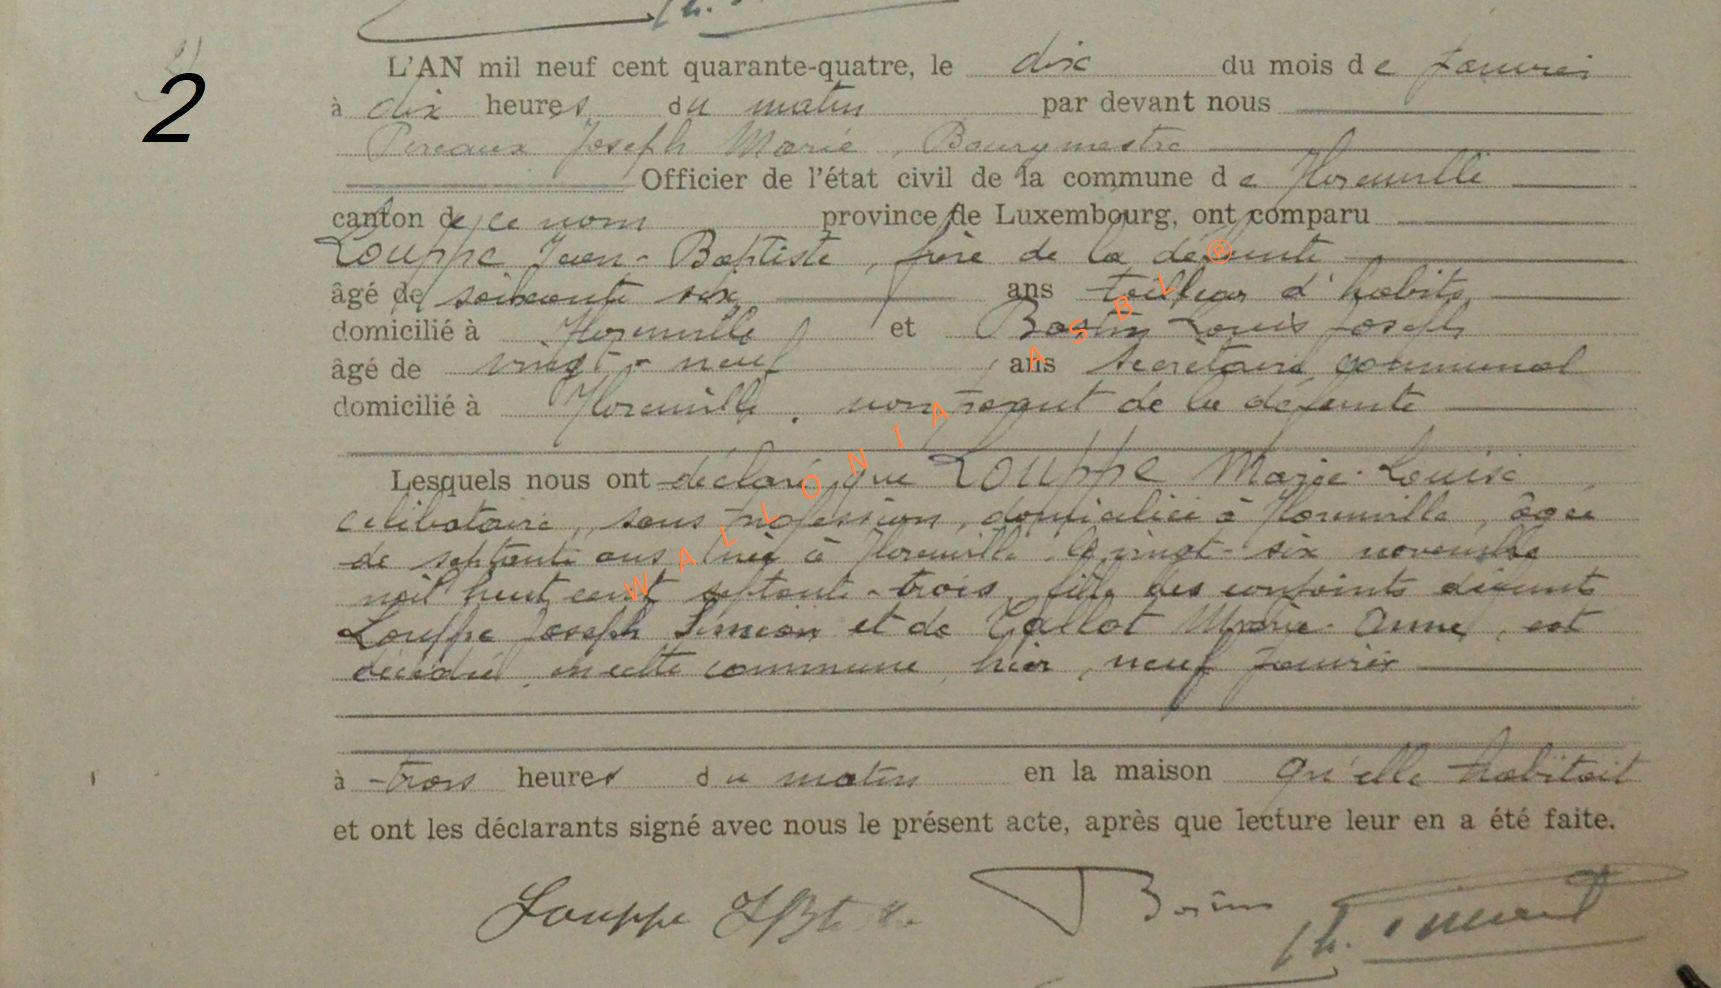 2
L'AN mil neuf cent quarante-quatre, le dix du mois de Janvier
à dix heures du matin par devant nous
Joseph Marie, Bourgmestre
Officier de l'état civil de la commune de Florenville
canton de ce nom province de Luxembourg, ont comparu
Louppe Jean-Baptiste, frère de la défunte
âgé de soixante six ans tailleur d'habits,
domicilié à Florenville et Bastin Louis Joseph
âgé de vingt-neuf ans secrétaire communal
domicilié à Florenville, non parent de la défunte
Lesquels nous ont déclaré que Louppe Marie-Louise,
célibataire, sans profession, domiciliée à Florenville, âgée
de septante ans née à Florenville le vingt-six novembre
mil huit cent septante-trois, fille des conjoints défunts
Louppe Joseph Siméon et de Tallot Marie-Anne, est
décédée, en cette commune, hier, neuf janvier
à trois heures du matin en la maison qu'elle habitait
et ont les déclarants signé avec nous le présent acte, après que lecture leur en a été faite.
Louppe JBte
WALLONIA ASBL ®